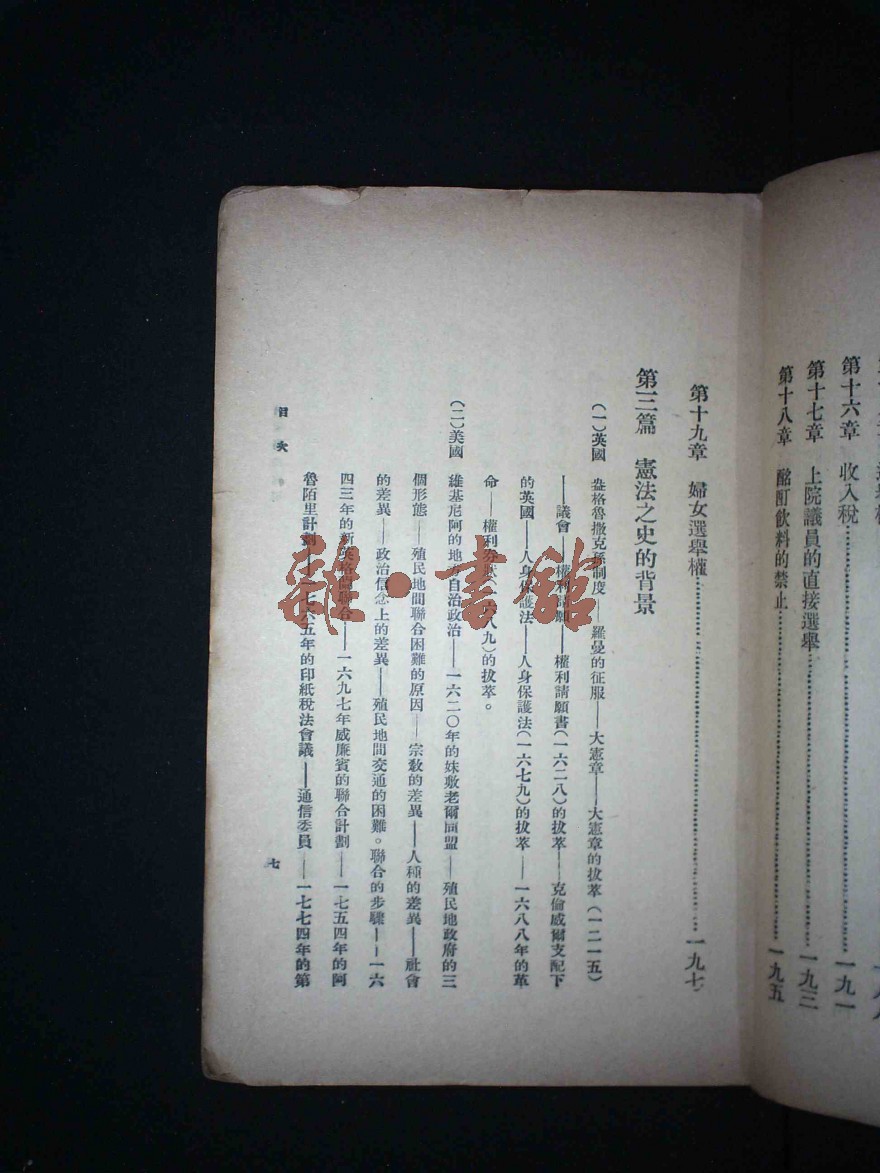 第十六章 收入稅……一九一
第十七章 上院議員的直接選舉……一九三
第十八章 酩酊飲料的禁止……一九五
第十九章 婦女選舉權……一九七
第三篇 憲法之史的背景
(一)英國 盎格魯撒克孫制度——羅曼的征服——大憲章——大憲章的拔萃(一二一五)
——議會——權利請願——權利請願書(一六二八)的拔萃——克倫威爾支配下
的英國——人身保護法——人身保護法(一六七九)的拔萃——一六八八年的革
命——權利 (一六八九)的拔萃。
(二)美國 維基尼阿的地方自治政治——一六二〇年的妹敷老爾同盟——殖民地政府的三
個形態——殖民地間聯合困難的原因——宗教的差異——人種的差異——社會
的差異——政治信念上的差異——殖民地間交通的困難。聯合的步驟——一六
四三年的新英格蘭聯合——一六九七年威廉賓的聯合計劃——一七五四年的阿
魯陌里計劃——一七六五年的印紙稅法會議——通信委員——一七七四年的第
目次
七
雜·書館